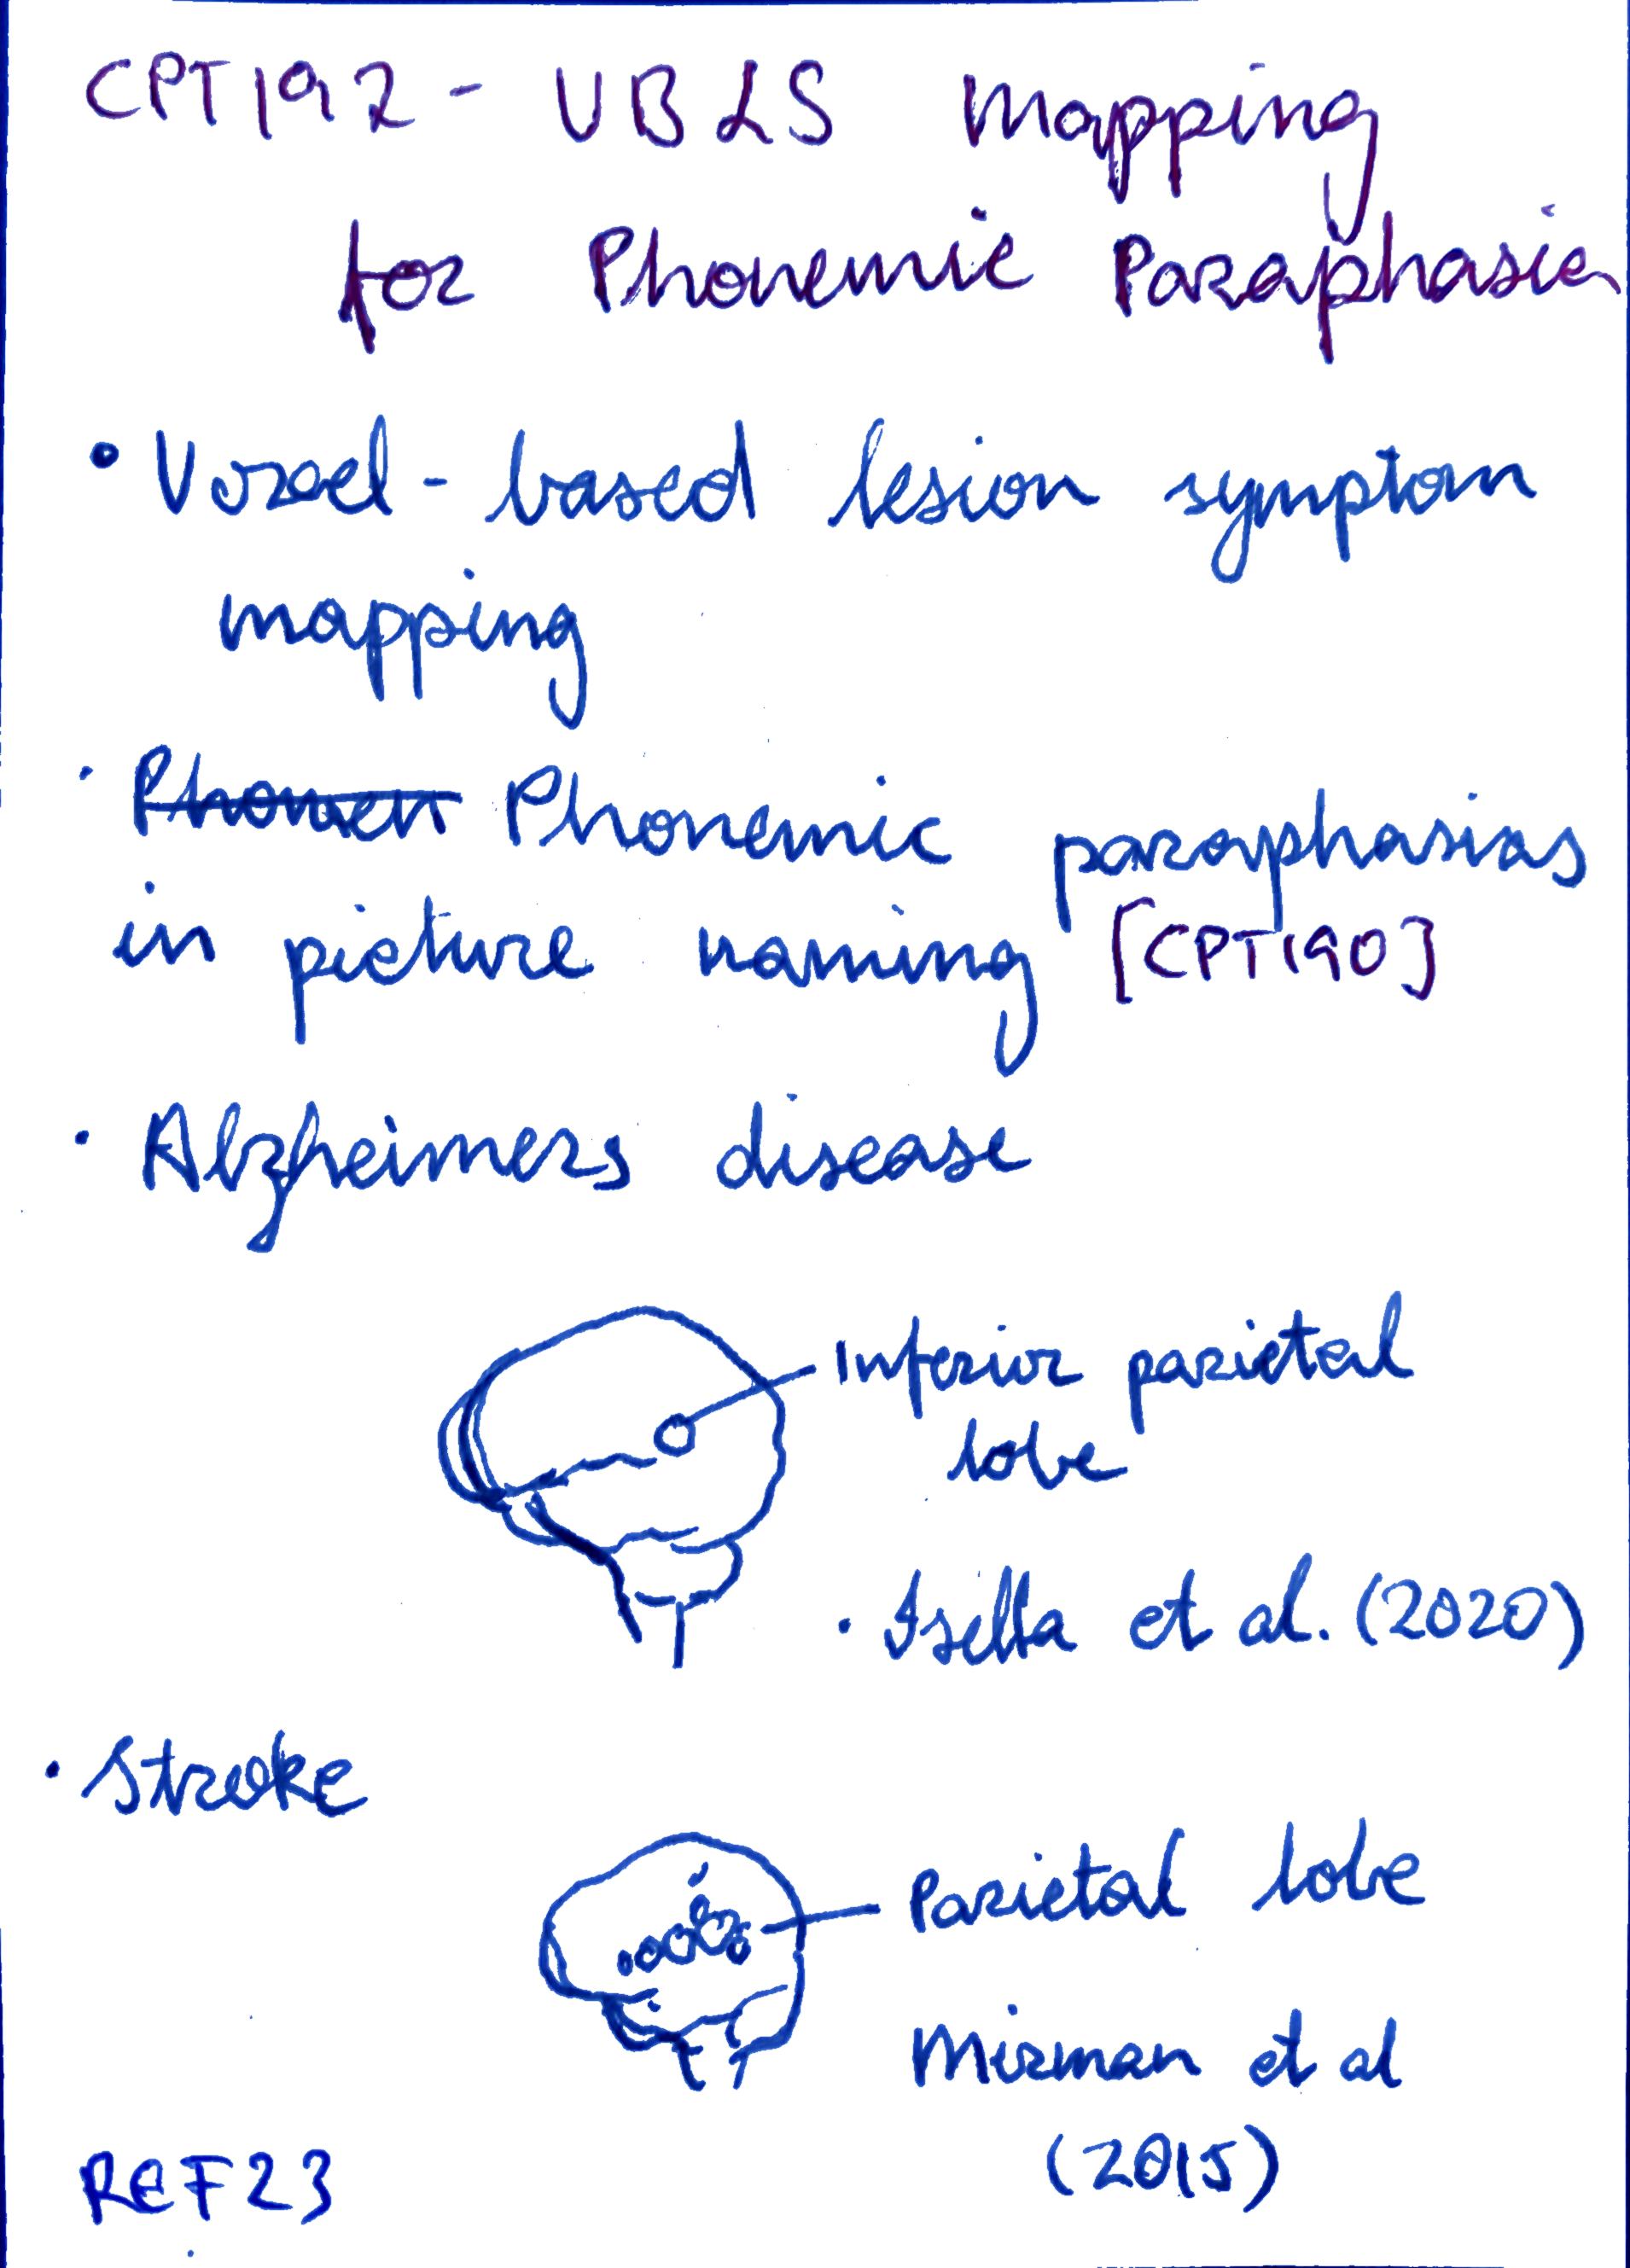 CPT192 - VBLS Mapping
for Phonemic Paraphasia
• Voxel-based lesion symptom
mapping
• Phonemic paraphasias
in picture naming [CPT190]
• Alzheimers disease
Inferior parietal
lobe
• Isella et al. (2020)
• Stroke
Parietal lobe
Mirman et al
(2015)
REF23